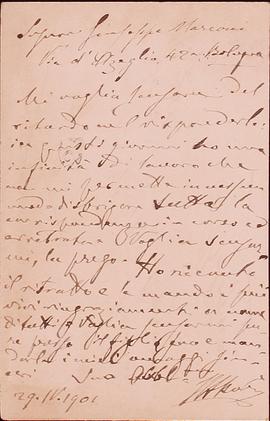 Signor Giuseppe Marconi
Via d'Azeglio, 42 - Bologna
Mi voglia scusare del
ritardo nel risponderle:
in questi giorni ho una
infinità di lavoro che
non mi permette in nessun
modo disbrigare tutta la
corrispondenza in corso ed
arretrata. Voglia scusar
mi, la prego. Ho ricevuto
il ritratto e le mando i più
vivi ringraziamenti
di tutto. Voglia
sin
ceri Suo Obbl
29. IV. 1901